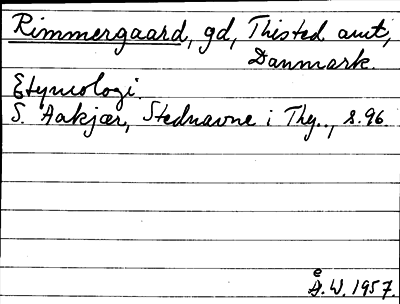 Rimmergaard, gd, Thisted amt,
Danmark
Etymologi.
S. Aakjær, Stednavne i Thy.., s. 96.
W. 1957.